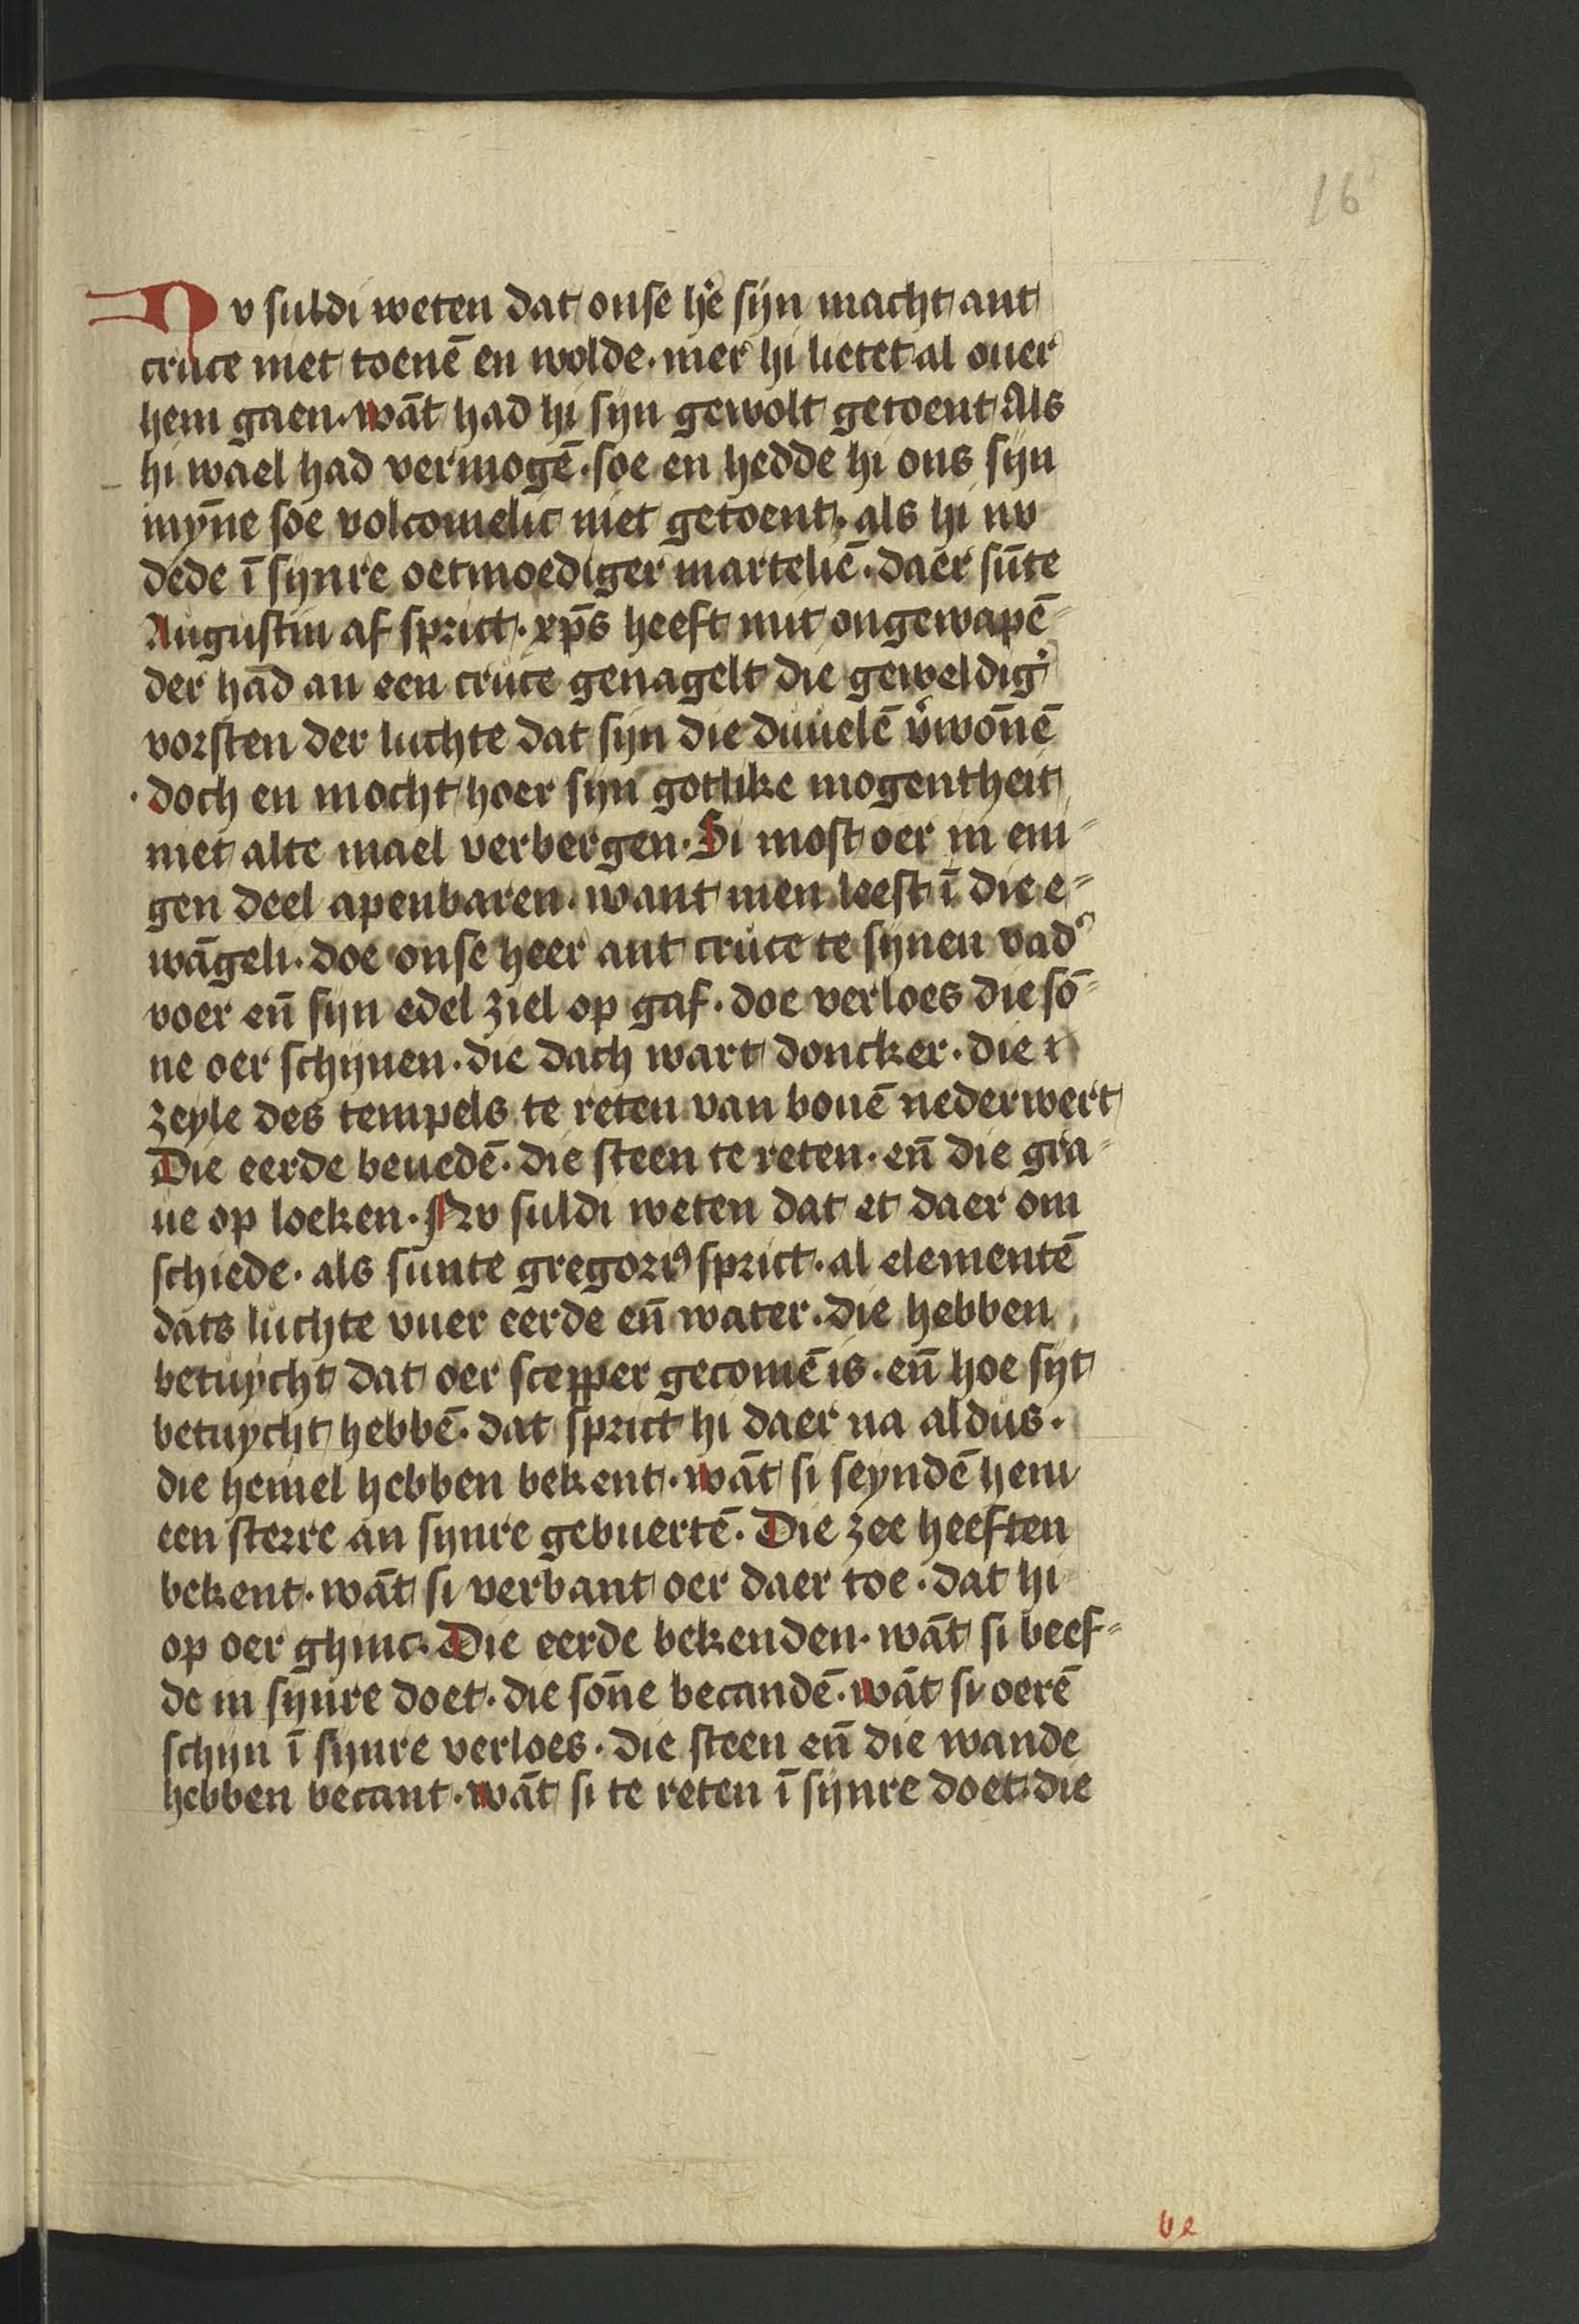 16
Nv suldi weten dat onse h̄e sijn macht ant
cruce niet toenē en wolde. mer hi lietet al ouer
hem gaen. wāt had hi sijn gewolt getoent Als
hi wael had vermogē. soe en hedde hi ons sijn
mȳne soe volcomelic niet getoent. als hi nv
dede ī sijnre oetmoediger marteliē. daer sūte
Augustin af sprict. xp̄s heeft mit ongewapē⸗
der hād an een cruce genagelt die geweldigʼ
vorsten der luchte dat sijn die duuelē v̓wōnē
doch en mocht hoer sijn gotlike mogentheit
niet alte mael verbergen. Si most oer in eni⸗
gen deel apenbaren. want men leest ī die e⸗
wāgeli. doe onse heer ant cruce te sijnen vadʼ
voer en̄ sijn edel ziel op gaf. doe verloes die sō⸗
ne oer schijnen. die dach wart doncker. die
zeyle des tempels te reten van bouē nederwert
Die eerde beuedē. die steen te reten. en̄ die gra⸗
ue op loeken. Nv suldi weten dat et daer om
schiede. als sunte gregoriꝰ sprict. al elementē
dats luchte vuer eerde en̄ water. die hebben
betuycht dat oer scepper gecomē is. en̄ hoe sijt
betuycht hebbē. dat sprict hi daer na aldus.
die hemel hebben bekent. wāt si seyndē hem
een sterre an sijnre gebuertē. Die zee heeften
bekent. wāt si verbant oer daer toe. dat hi
op oer ghinc. Die eerde bekenden. wāt si beef⸗
de in sijnre doet. die sōne becandē. wāt si oerē
schijn ī sijnre verloes. die steen en̄ die wande
hebben becant. wāt si te reten ī sijnre doet. die
ve